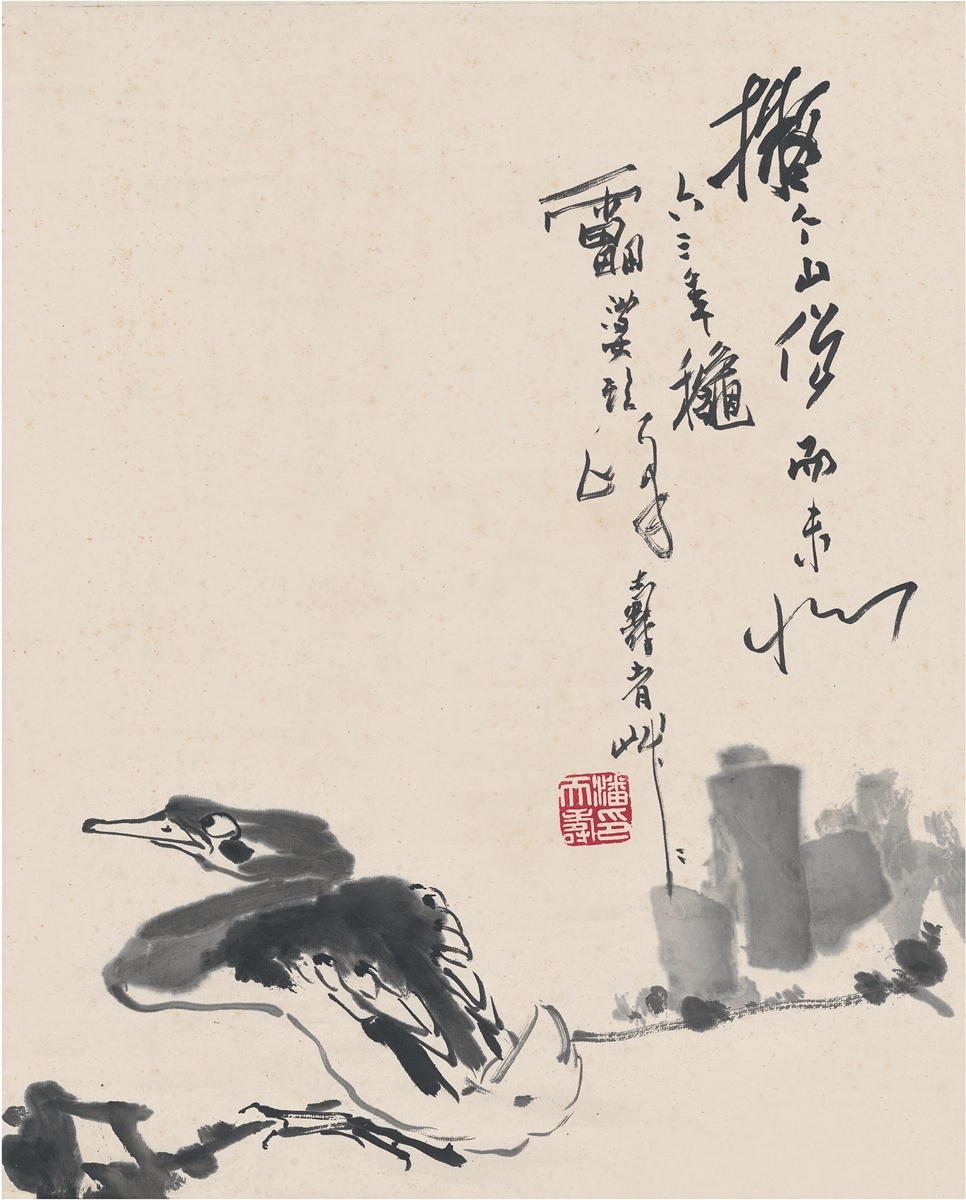 擬个山僧而未似
六三年龝
靁婆頭峰壽者艸
潘印天壽